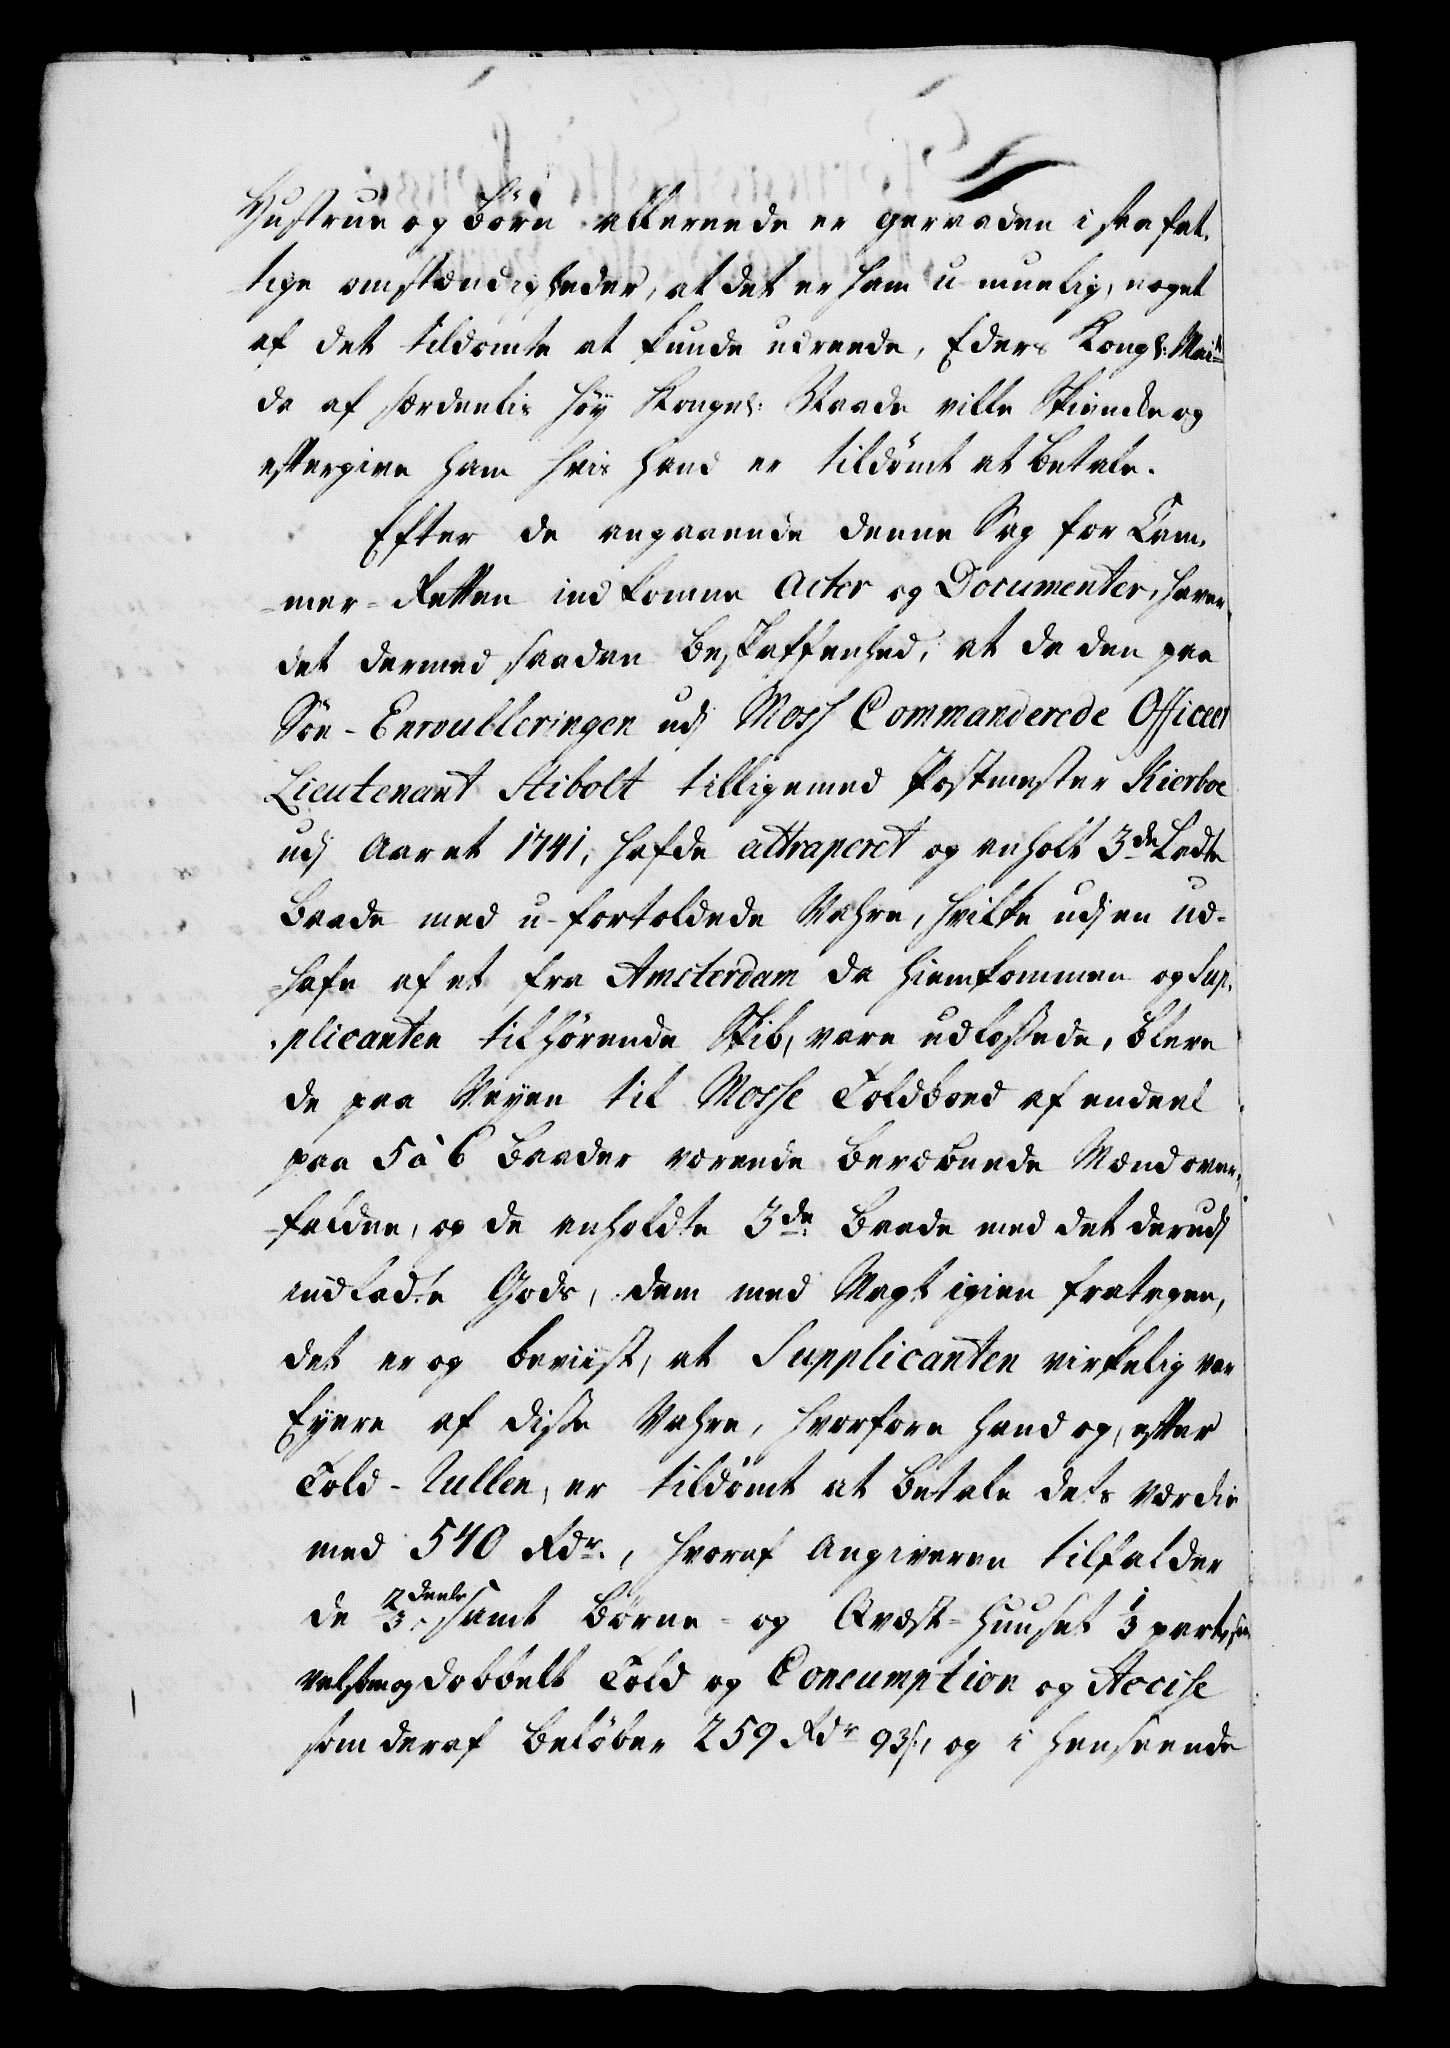 Hustrue og Börn allereede er geraaden i saa fat,
tige omstændigheder, at det er ham u-muelig, noget
af det tildömte at kunde udreede, Eders Kongl: Mai:ts
da af særdeelis höy Kongel: Naade ville skienke og
eftergive ham hvis hand er tildömt at betale.
Efter de angaaende denne Sag for Cam,
mer-Retten ind komne Acter og Documenter, haver
det dermed saadan beskaffenhed, at da den paa
Söe-Enroulleringen udj Moss Commanderede Officeer
Lieutenant Stibolt tilligemed Postmester Kierboe
udj Aaret 1741, hafde attraperet og anholt 3de Ladte
Baade med u-fortoldede Vahre, hvilke udj en ud-
hafn af et fra Amsterdam da hiemkommen og Sup,
plicanten tilhörende Skib, vare udlossede, bleve
de paa Veyen til Mosse Toldboed af endeel
paa 5 à 6 Baader værende bevæbnede Mænd over,
faldne, og de anholdte 3de Baade med det derudj
indladte Gods, dem med Magt igien fratagen,
det er og beviist, at Supplicanten virkelig var
Eyere af disse Vahre, hvorfore hand og, efter
Told-Rullen, er tildömt at betale dets værdie
med 540 Rdr., hvoraf Angiveren tilfalder
de 2/3 deele samt Börne- og Qvæst-Huuset 1/3 part, saa
velsom og dobbelt Told og Concumption og Accise
som deraf belöber 259 Rdr 93 s:, og i henseende